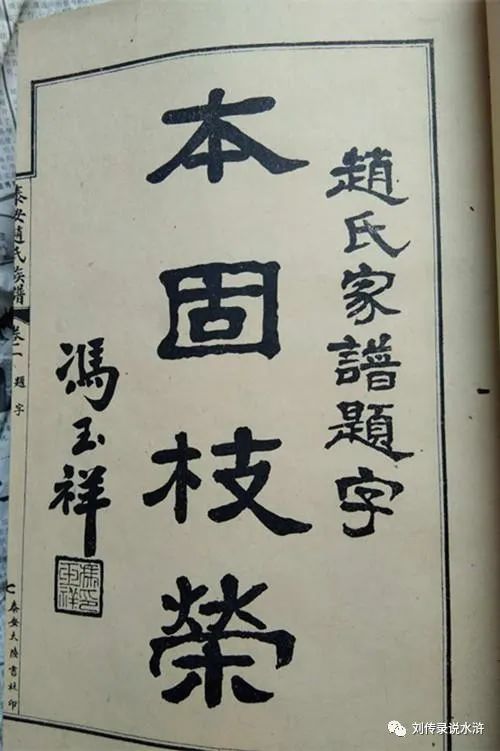 趙氏家譜題字
本固枝榮
馮玉祥
泰安趙氏族譜
卷二
題字
泰安大陸書社印
刘传录说水浒